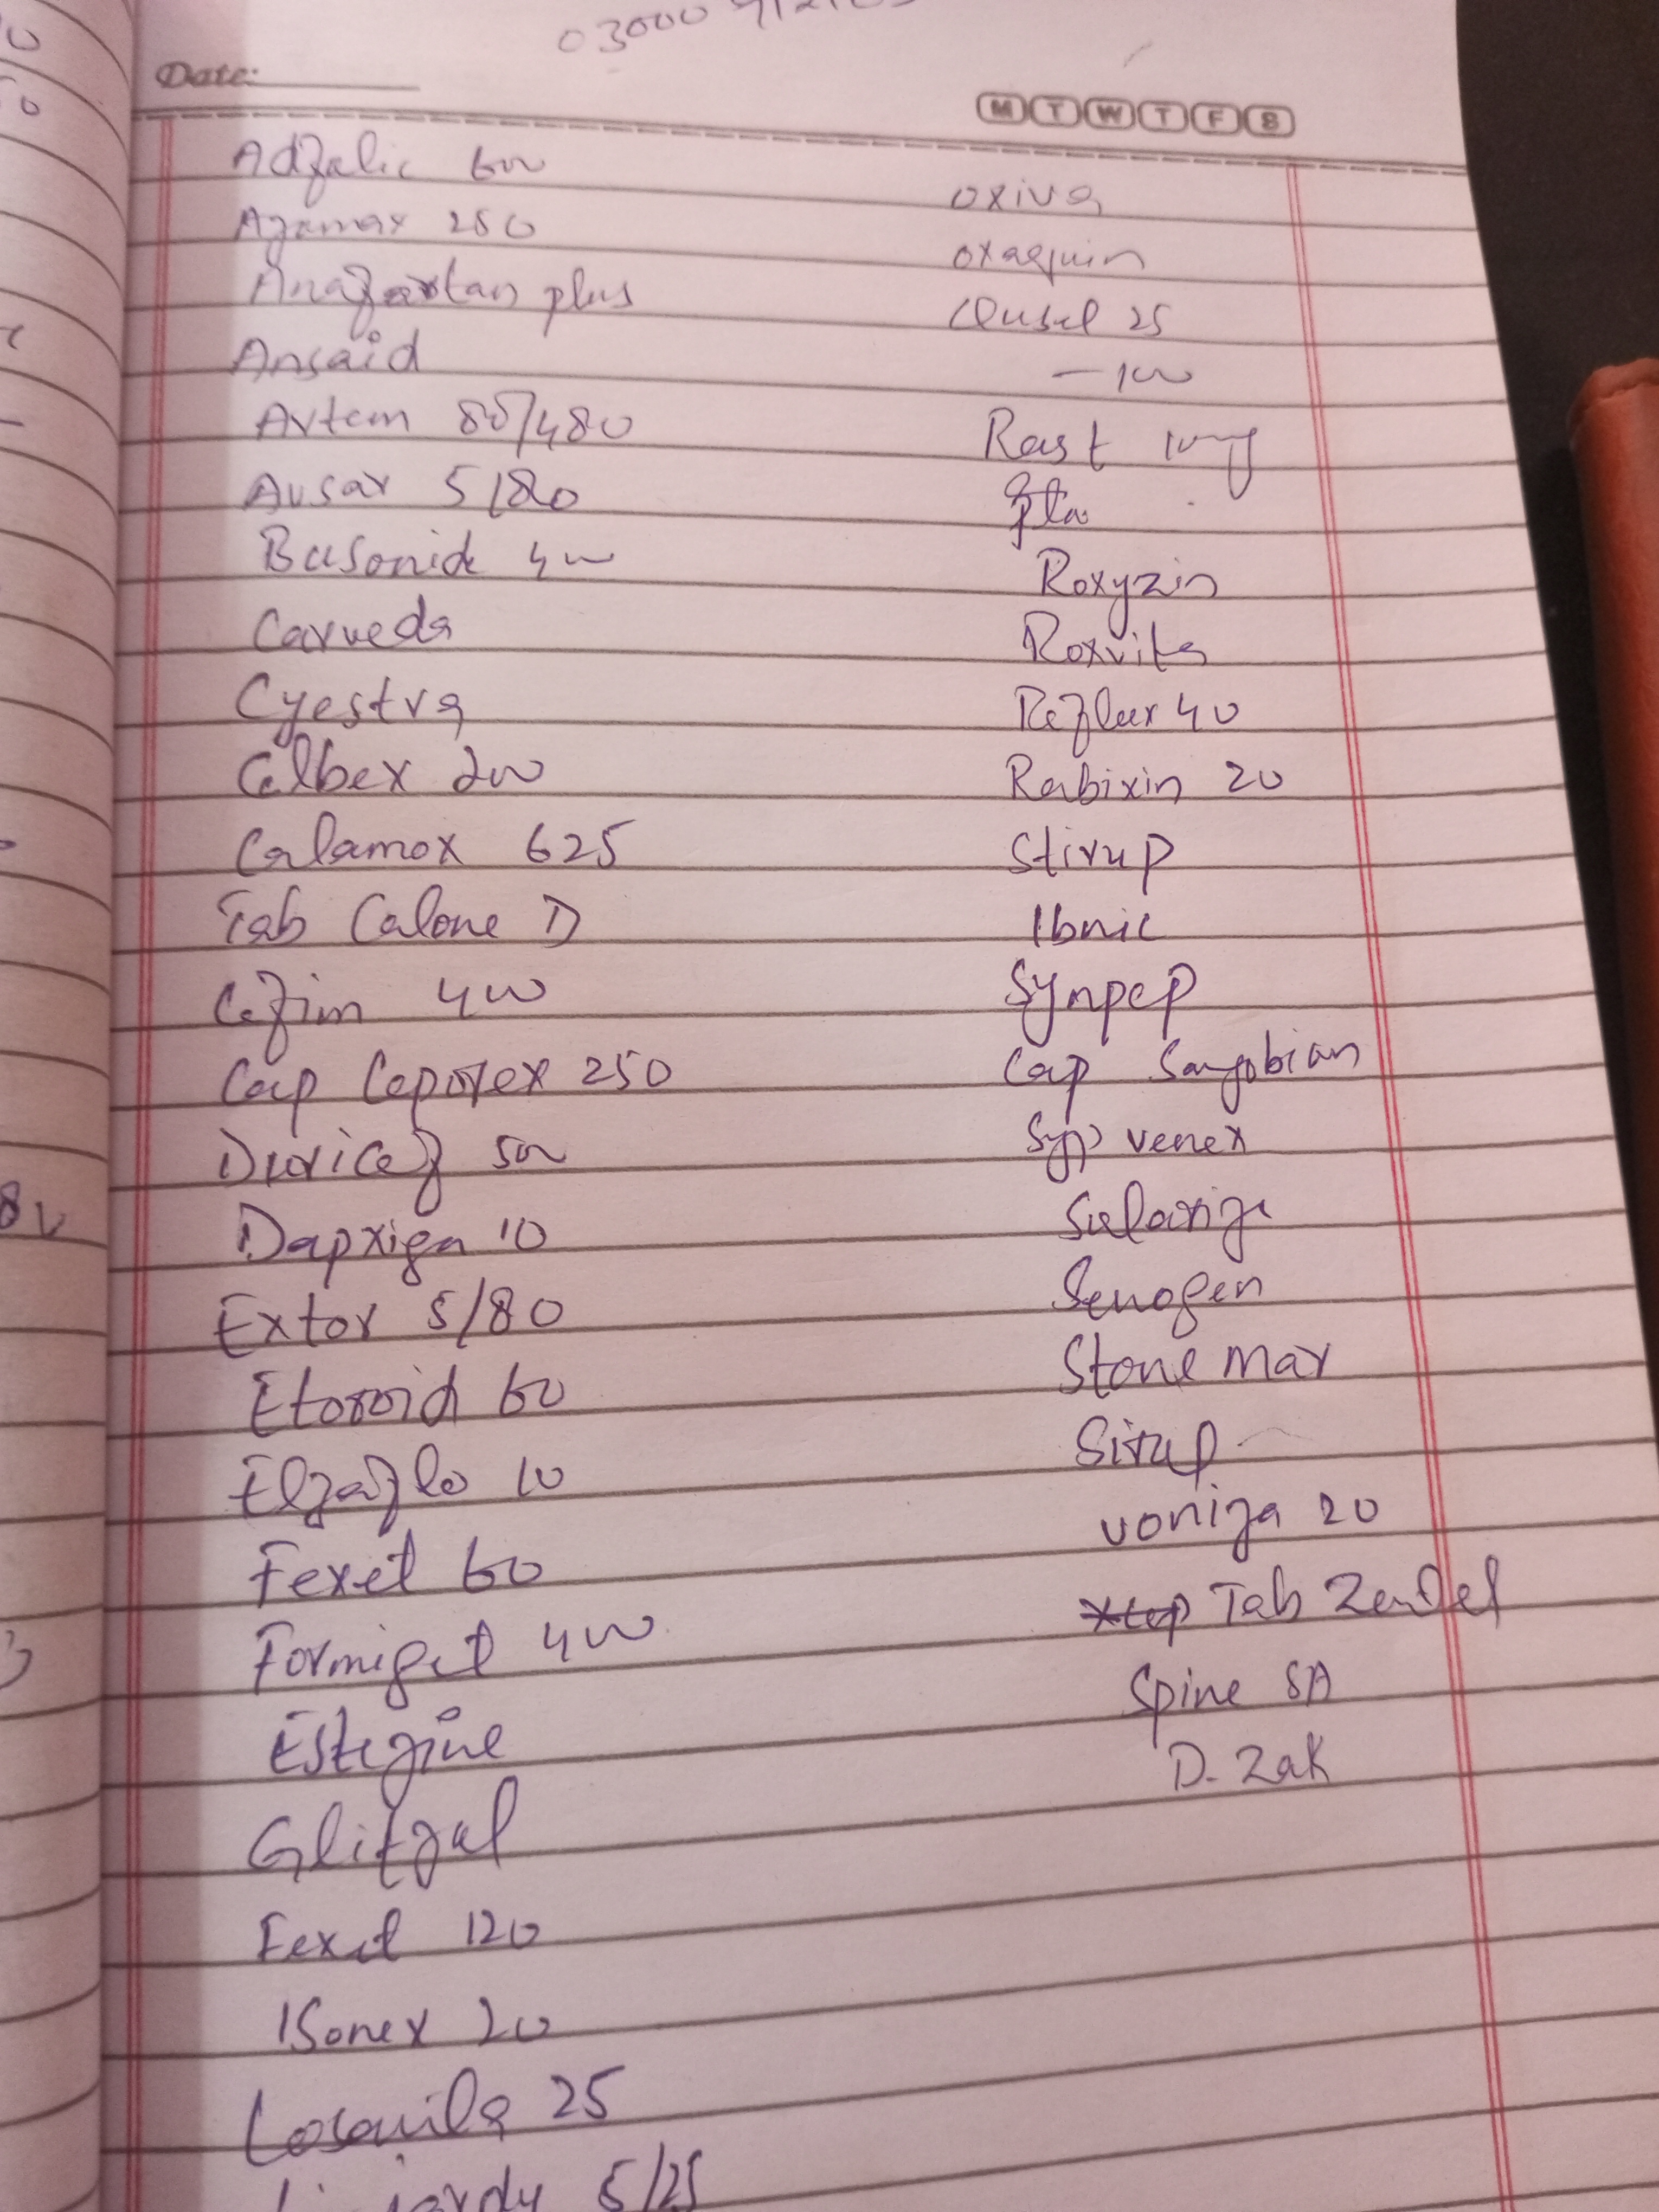 Date:
M T W T F S
Adfalic 600
Azomax 250
Anafortan plus
Ansaid
Artem 80/480
Avsar 5/80
Busonide 400
Carveda
Cyestra
Celbex 200
Calamox 625
Tab Calone D
Cefim 400
Cap Ceporex 250
Duricef 500
Dapxiga 10
Extor 5/80
Etoroid 60
Elzaflo 10
Fexet 60
Formiget 400
Estezine
Glitzal
Fexet 120
ISonex 20
Losanila 25
5/25
oxiva
oxaquin
Qusel 25
— 100
Rast 10mg
Roxyzin
Roxvita
Reflux 40
Rabixin 20
Stirup
Ibnic
Synpep
Cap Sangobian
Syp venex
Senogen
Stone max
Sirup
voniza 20
Tab Zendel
Spine SA
D. Zak